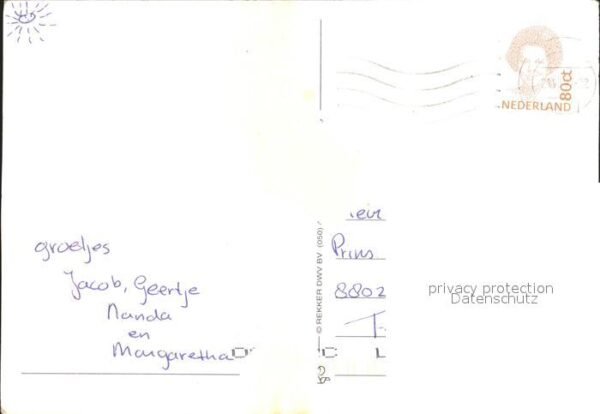 80ct
NEDERLAND
groetjes
Jacob, Geertje
Nanda
en
Margaretha
© REKKER DWV BV. (050)
Prins
8802
privacy protection
Datenschutz